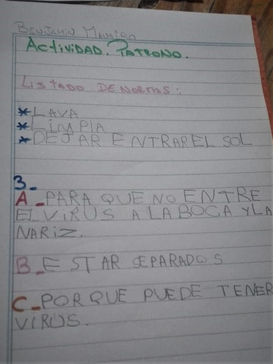 Benjamin
ACTIVIDAD. PATRONO.
LISTADO DE NORMAS:
*LAVA
*LIMPIA
*DEJAR ENTRAR EL SOL
3_
A_PARA QUE NO ENTRE
EL VIRUS A LA BOCA Y LA
NARIZ.
B_E STAR SEPARADOS
C_POR QUE PUEDE TENER
VIRUS.